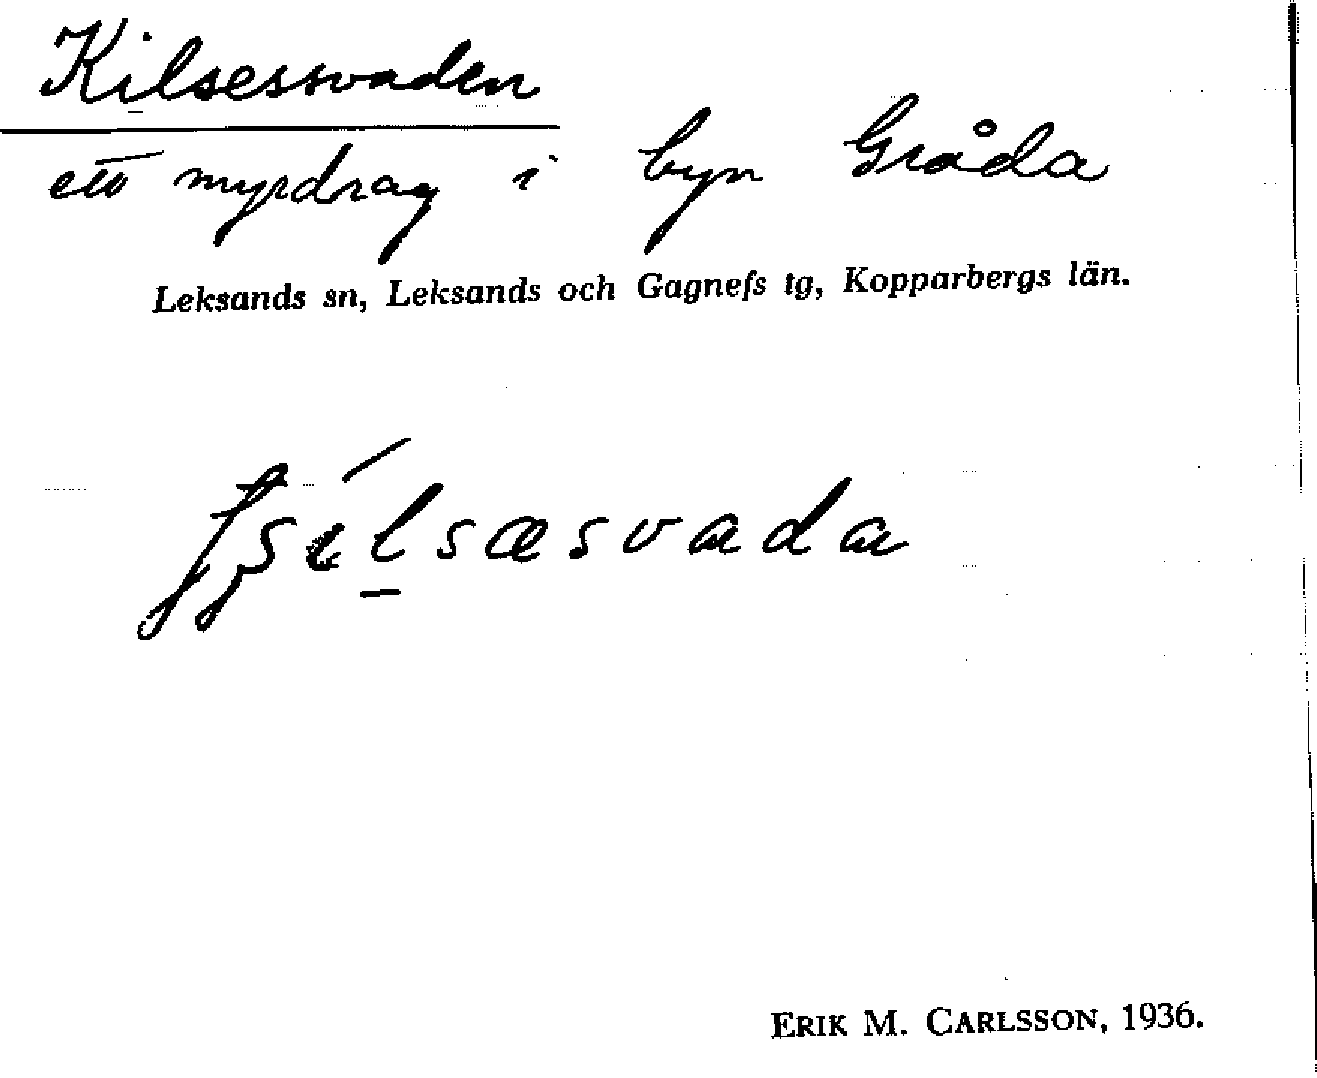 Kilsessvaden
ett myrdrag i byn Gråda
Leksands sn, Leksands och Gagnefs tg, Kopparbergs län.
ERIK M. CARLSSON, 1936.